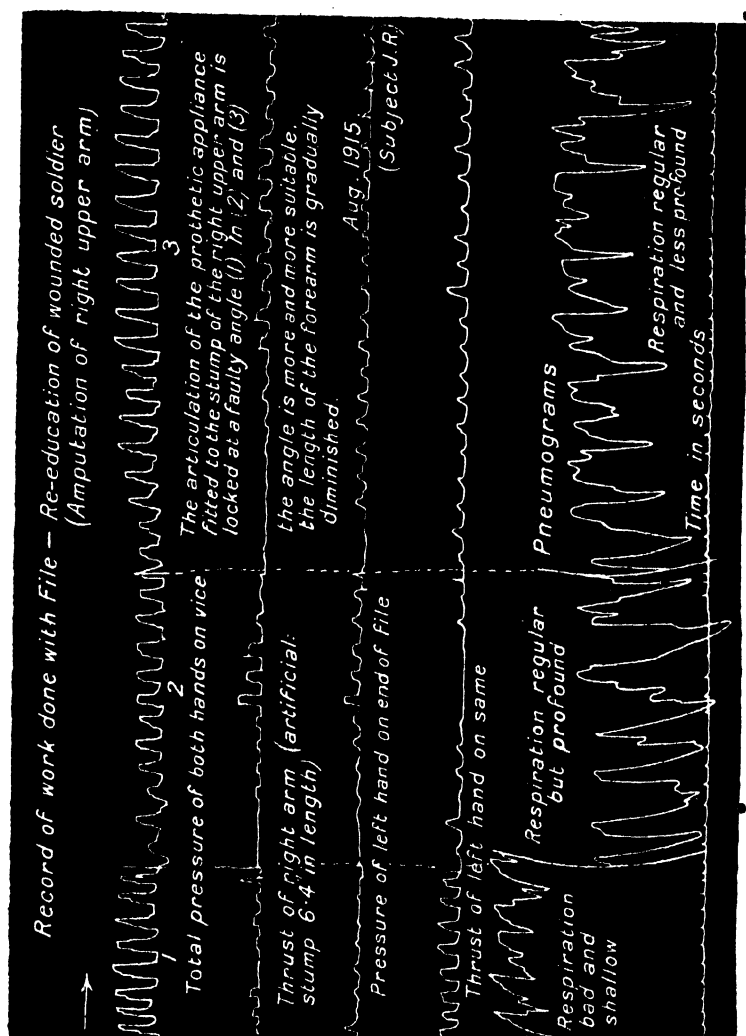 Record of work done with File — Re-education of wounded soldier
(Amputation of right upper arm)
1
2
3
Total pressure of both hands on vice
The articulation of the prothetic appliance
fitted to the stump of the right upper arm is
locked at a faulty angle (1) in (2) and (3)
the angle is more and more suitable.
the length of the forearm is gradually
diminished.
Thrust of right arm (artificial:
stump 6·4 in length)
Aug. 1915.
(Subject J.R)
Pressure of left hand on end of file
Thrust of left hand on same
Pneumograms
Respiration
bad and
shallow
Respiration regular
but profound
Respiration regular
and less profound
Time in seconds